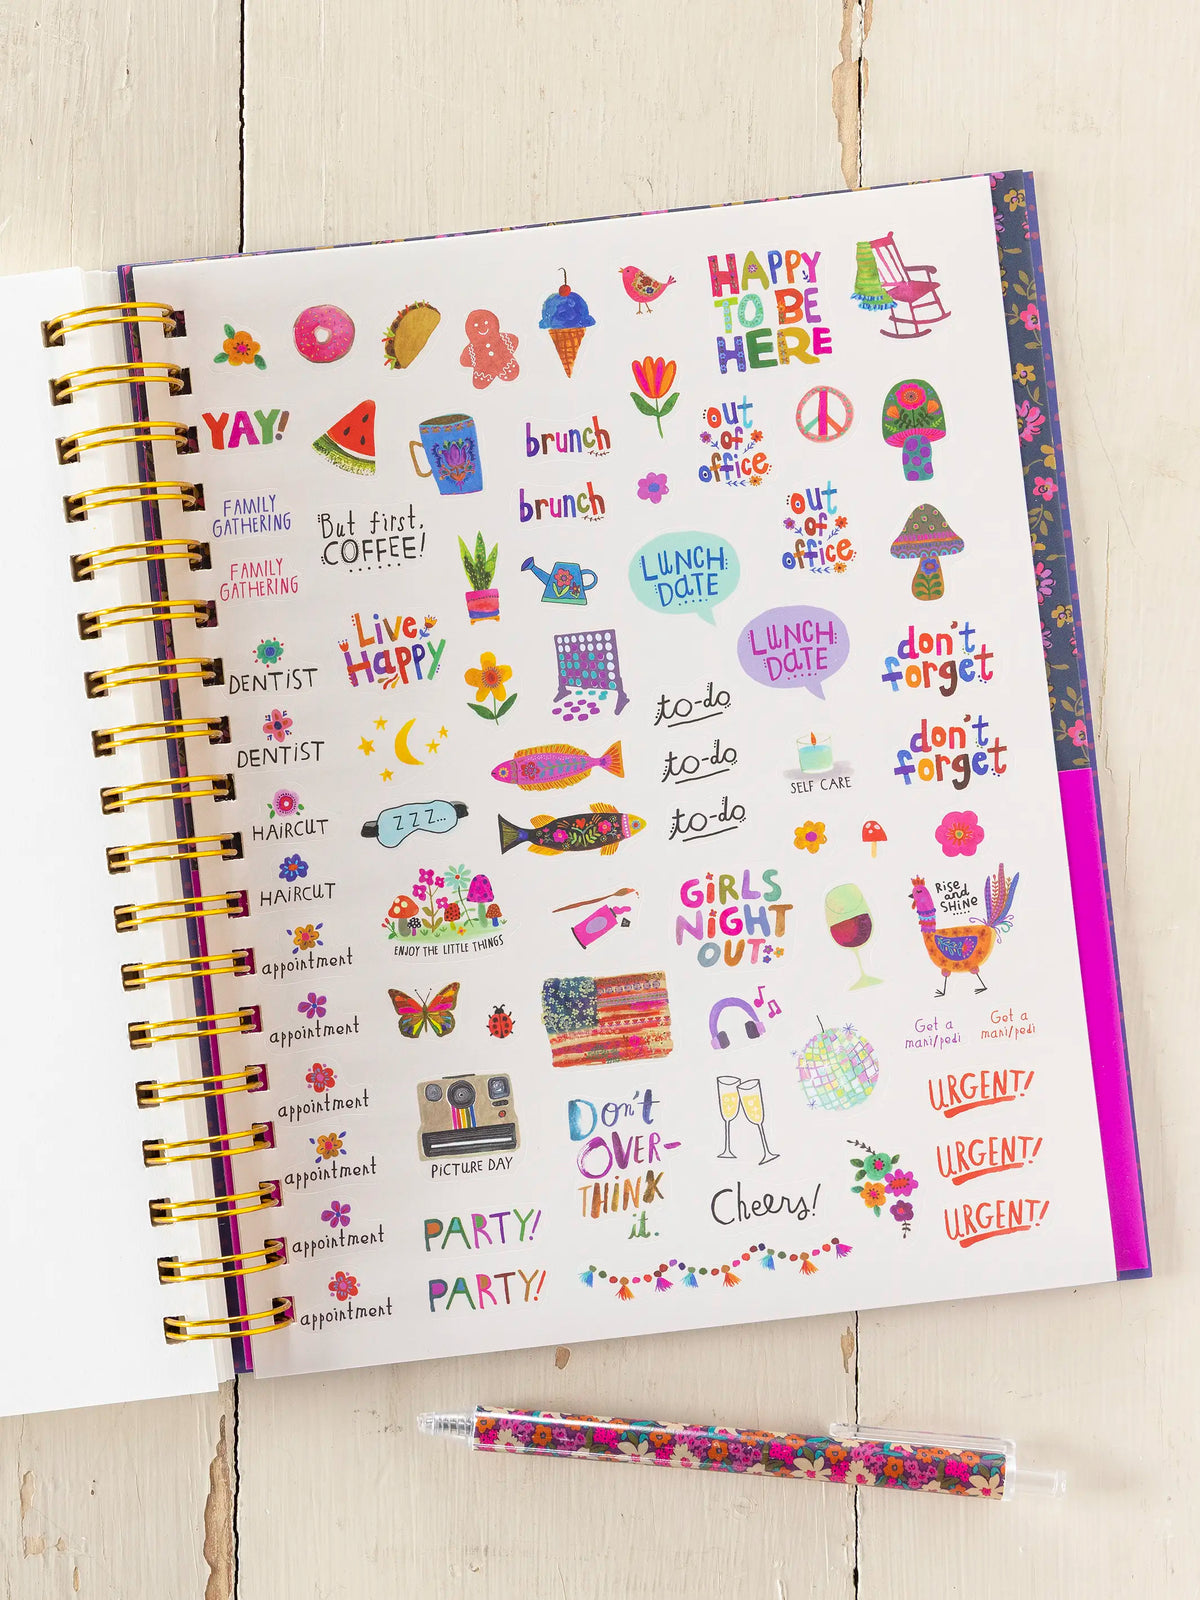 HAPPY
TO BE
HERE
YAY!
brunch
out
of
office
FAMILY
GATHERING
But first,
COFFEE!
brunch
out
of
office
FAMILY
GATHERING
LUNCH
DATE
Live
Happy
LUNCH
DATE
don't
forget
DENTIST
to-do
DENTIST
to-do
SELF CARE
don't
forget
HAIRCUT
ZZZ...
to-do
HAIRCUT
ENJOY THE LITTLE THINGS
GIRLS
NIGHT
OUT
Rise
and
SHINE
appointment
appointment
Get a
mani/pedi
Get a
mani/pedi
appointment
PICTURE DAY
Don't
OVER-
THINK
it.
URGENT!
appointment
URGENT!
appointment
PARTY!
Cheers!
URGENT!
appointment
PARTY!